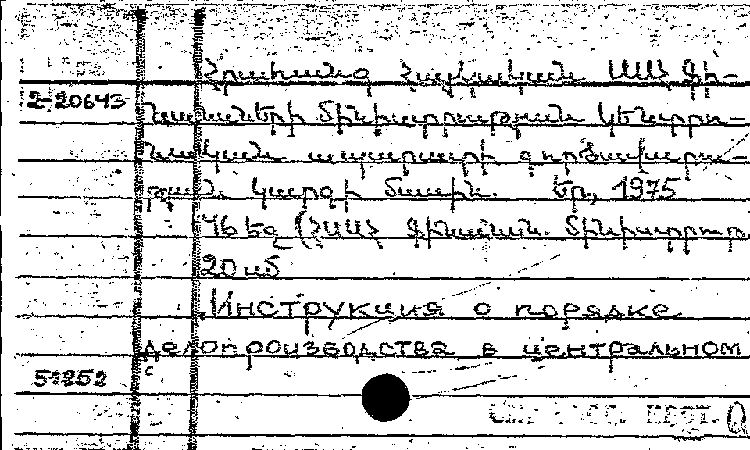 Հրահանգ Հայկական ՍՍՀ Ֆի-
2-20643
նանսների մինիստրության կենտրո-
նական ապարատի գործավարու-
թյան կարգի մասին. Եր., 1975
46 եզ (ՀՍՍՀ Ֆինանսն. մինիստրտր.
20 սմ
Инструкция о порядке
делопроизводства в центральном
51252
См.